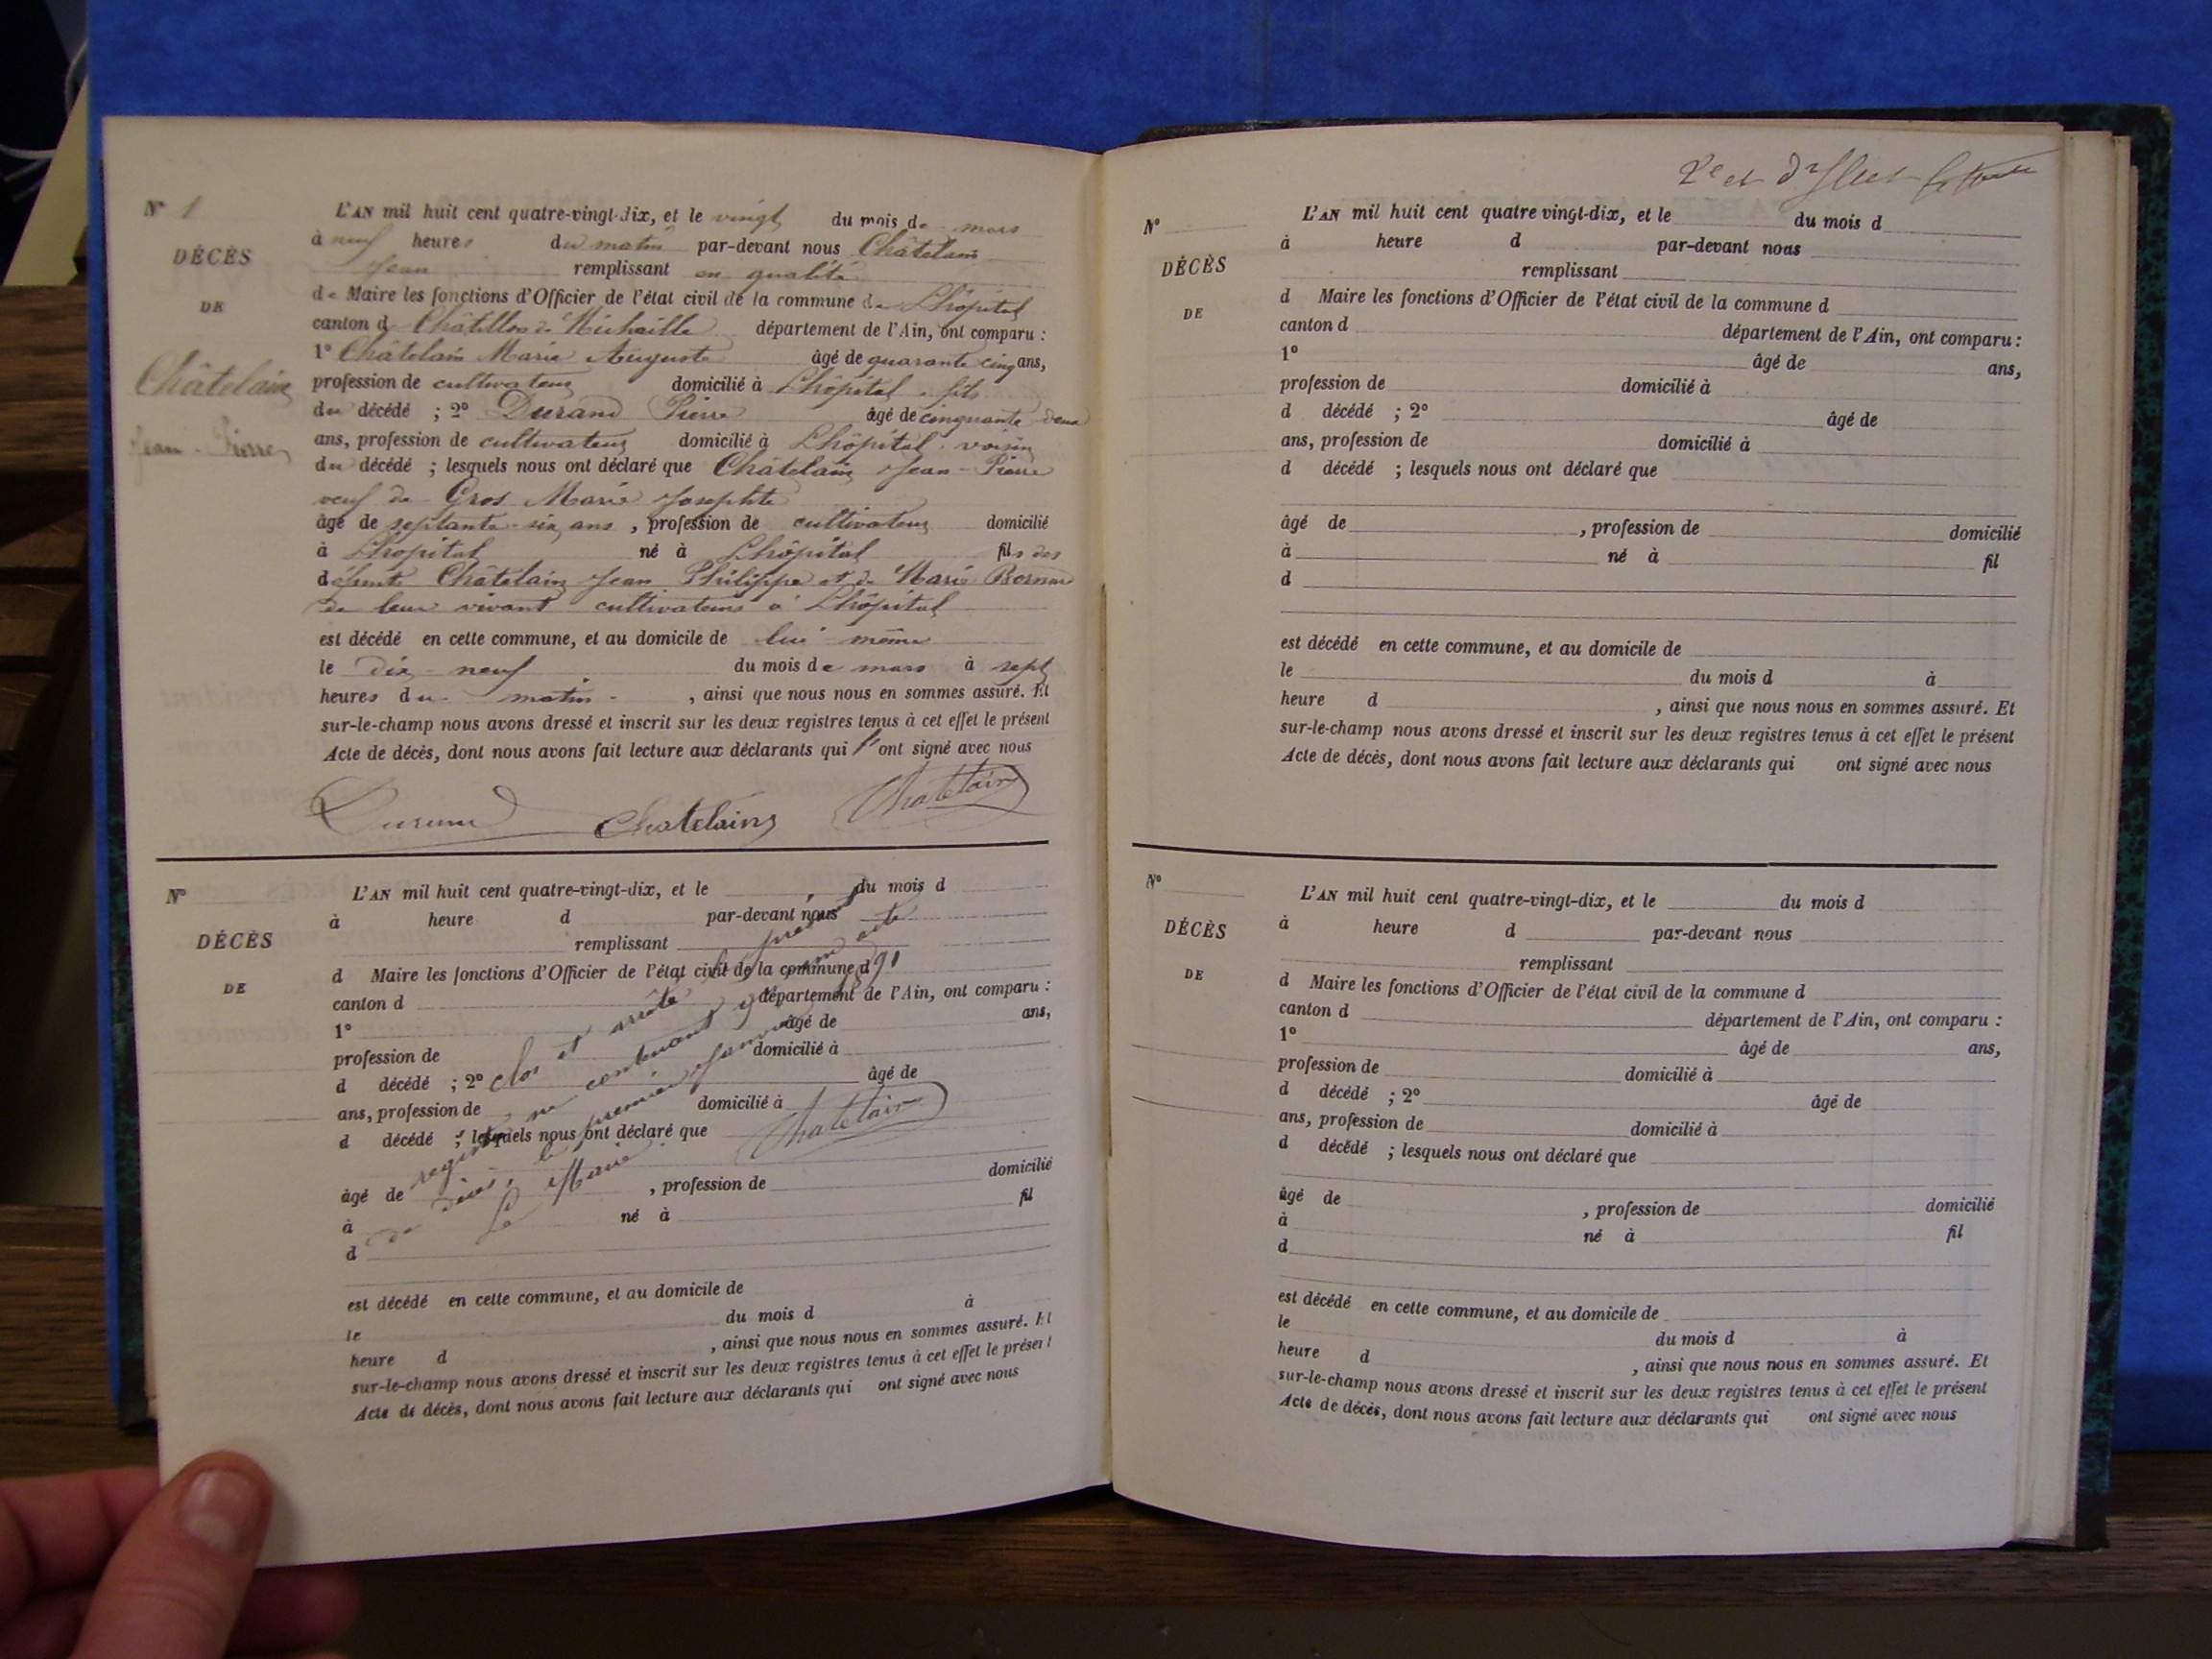 N° 1
DÉCÈS
DE
Châtelain
Jean-Pierre
L'AN mil huit cent quatre-vingt-dix, et le vingt du mois de mars
à neuf heures du matin par-devant nous Châtelain
Jean remplissant en qualité
de Maire les fonctions d'Officier de l'état civil de la commune de Lhôpital
canton d Châtillon de Michaille département de l'Ain, ont comparu :
1° Châtelain Marie Auguste âgé de quarante cinq ans,
profession de cultivateur domicilié à Lhôpital, fils
du décédé ; 2° Durand Pierre âgé de cinquante deux
ans, profession de cultivateur domicilié à Lhôpital, voisin
du décédé ; lesquels nous ont déclaré que Châtelain Jean-Pierre
veuf de Gros Marie Josephte
âgé de septante-six ans, profession de cultivateur domicilié
à Lhopital né à Lhôpital fils des
défunts Châtelain Jean Philippe et de Marie Bornand
de leur vivant cultivateurs à Lhôpital
est décédé en cette commune, et au domicile de lui-même
le dix-neuf du mois de mars à sept
heures du matin, ainsi que nous nous en sommes assuré. Et
sur-le-champ nous avons dressé et inscrit sur les deux registres tenus à cet effet le présent
Acte de décès, dont nous avons fait lecture aux déclarants qui l'ont signé avec nous
Durand Chatelain Chatelain
N°
DÉCÈS
DE
L'AN mil huit cent quatre-vingt-dix, et le du mois d
à heure d par-devant nous
remplissant
d Maire les fonctions d'Officier de l'état civil de la commune d
canton d département de l'Ain, ont comparu :
1° âgé de ans,
profession de domicilié à
d décédé ; 2° âgé de
ans, profession de domicilié à
d décédé ; lesquels nous ont déclaré que
âgé de , profession de domicilié
à né à fil
d
est décédé en cette commune, et au domicile de
le du mois d à
heure d , ainsi que nous nous en sommes assuré. Et
sur-le-champ nous avons dressé et inscrit sur les deux registres tenus à cet effet le présent
Acte de décès, dont nous avons fait lecture aux déclarants qui ont signé avec nous
clos et arrêté le présent
registre ne contenant qu'un acte
de décès, le premier janvier 1891
Le Maire
Chatelain
2e et dr flet
N°
DÉCÈS
DE
L'AN mil huit cent quatre vingt-dix, et le du mois d
à heure d par-devant nous
remplissant
d Maire les fonctions d'Officier de l'état civil de la commune d
canton d département de l'Ain, ont comparu :
1° âgé de ans,
profession de domicilié à
d décédé ; 2° âgé de
ans, profession de domicilié à
d décédé ; lesquels nous ont déclaré que
âgé de , profession de domicilié
à né à fil
d
est décédé en cette commune, et au domicile de
le du mois d à
heure d , ainsi que nous nous en sommes assuré. Et
sur-le-champ nous avons dressé et inscrit sur les deux registres tenus à cet effet le présent
Acte de décès, dont nous avons fait lecture aux déclarants qui ont signé avec nous
N°
DÉCÈS
DE
L'AN mil huit cent quatre-vingt-dix, et le du mois d
à heure d par-devant nous
remplissant
d Maire les fonctions d'Officier de l'état civil de la commune d
canton d département de l'Ain, ont comparu :
1° âgé de ans,
profession de domicilié à
d décédé ; 2° âgé de
ans, profession de domicilié à
d décédé ; lesquels nous ont déclaré que
âgé de , profession de domicilié
à né à fil
d
est décédé en cette commune, et au domicile de
le du mois d à
heure d , ainsi que nous nous en sommes assuré. Et
sur-le-champ nous avons dressé et inscrit sur les deux registres tenus à cet effet le présent
Acte de décès, dont nous avons fait lecture aux déclarants qui ont signé avec nous